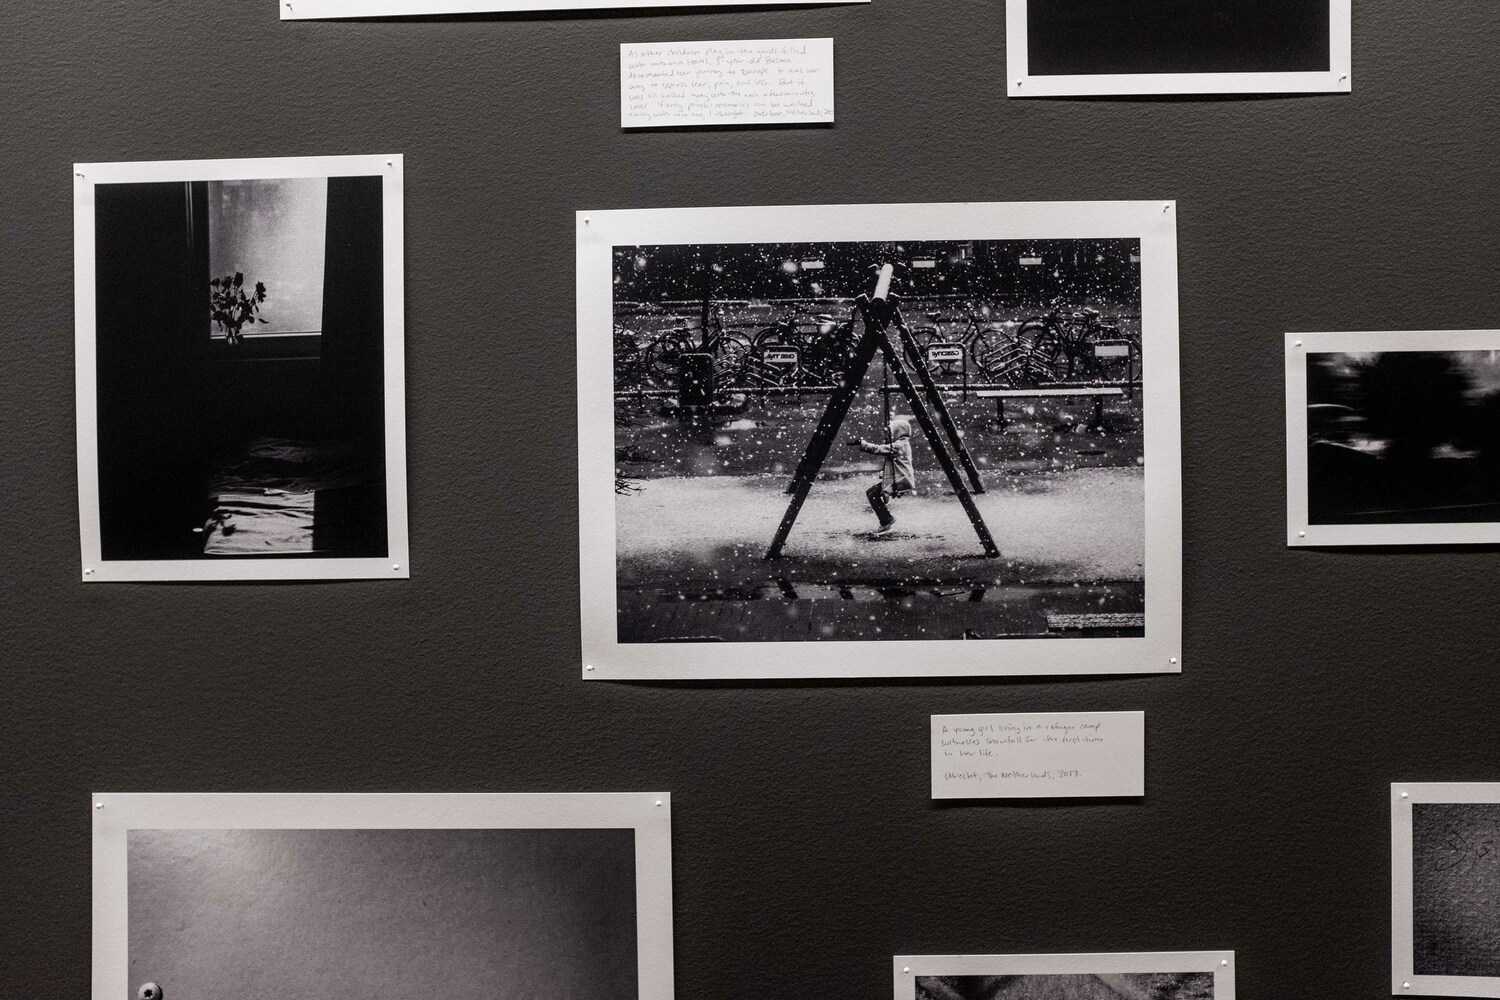 As other children play in the yards filled
with autumn leaves, 8-year-old
documented her journey to Europe. It was her
way to express fear, pain, and loss. But it
was all washed away with the rain a few
later. If only painful memories can be washed
away with rain too, I thought. Netherlands,
syncasso
syncasso
A young girl living in a refugee camp
witnesses snowfall for the first time
in her life.
Utrecht, The Netherlands, 2017.